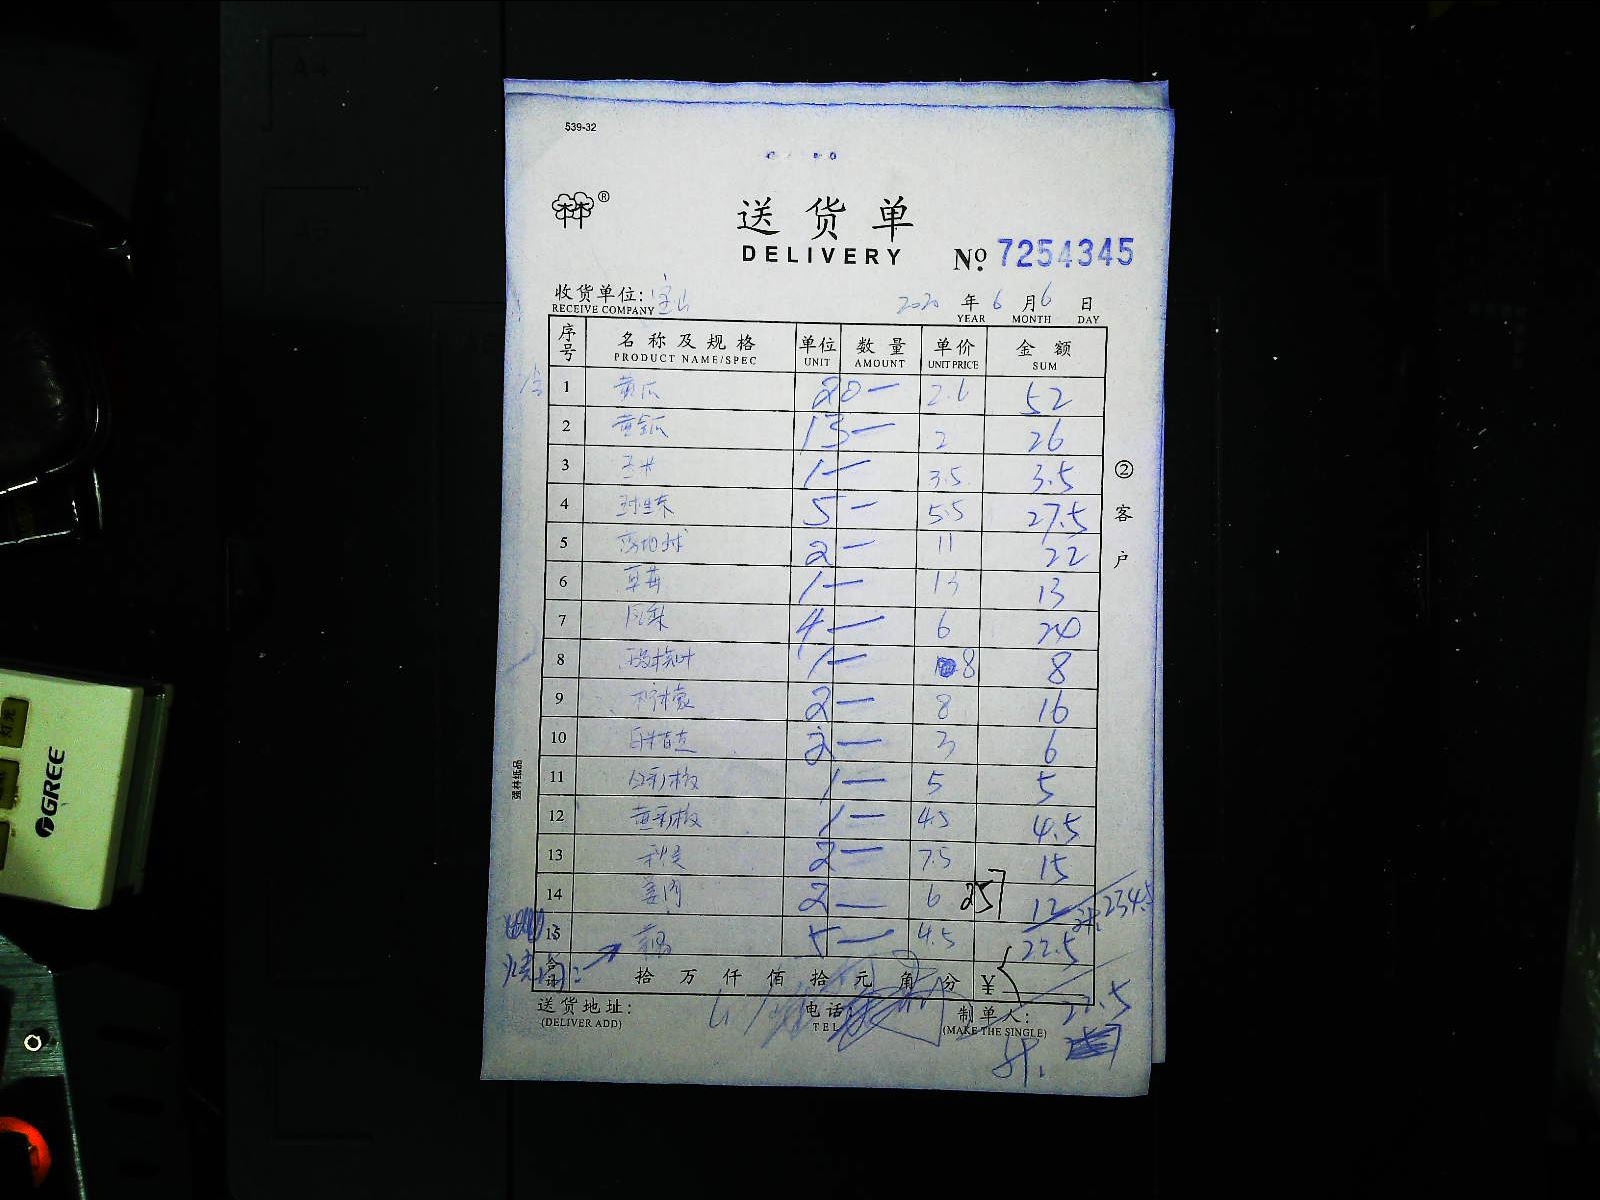 539-32
送货单
DELIVERY
No. 7254345
收货单位: 宝山 2020 年 6 月 6 日
RECEIVE COMPANY YEAR MONTH DAY
序号 名称及规格 单位 数量 单价 金额
PRODUCT NAME/SPEC UNIT AMOUNT UNIT PRICE SUM
1 黄瓜 20 — 2.6 52
2 黄金瓜 13 — 2 26
3 1 — 3.5 3.5
4 5 — 5.5 27.5
5 2 — 11 22
6 草莓 1 — 13 13
7 凤梨 4 — 6 24
8 1 — 8 8
9 柠檬 2 — 8 16
10 2 — 3 6
11 1 — 5 5
12 黄彩椒 1 — 4.5 4.5
13 2 — 7.5 15
14 2 — 6 25 12
计. 234.5
15 5 — 4.5 22.5
合计 拾 万 仟 佰 拾 元 角 分 ¥
22.5
送货地址: 电话: 制单人:
(DELIVER ADD) TEL (MAKE THE SINGLE)
② 客户
强林纸品
GREE